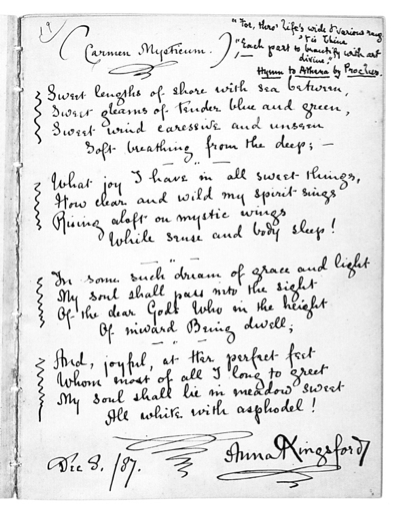 19
"For, thro' life's wide & various range
'tis Thine
Each part to beautify with art
divine."
Hymn to Athena by Proclus.
(Carmen Mysticum.)
Sweet lengths of shore with sea between,
Sweet gleams of tender blue and green,
Sweet wind caressive and unseen
Soft breathing from the deep; —
What joy I have in all sweet things,
How clear and wild my spirit sings
Rising aloft on mystic wings
While sense and body sleep!
In some such dream of grace and light
My soul shall pass into the sight
Of the dear Gods Who in the height
Of inward Being dwell;
And, joyful, at Her perfect feet
Whom most of all I long to greet
My soul shall lie in meadow sweet
All white with asphodel!
Anna Kingsford
Dec 8. /87.